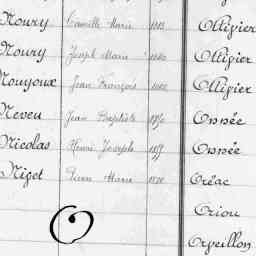 Noury Camille Marie 1883 Olligier
Noury Joseph Marie Olligier
Nouyoux Jean François Olligier
Neveu Jean Baptiste 1870 Onnée
Nicolas Henri Joseph 1877 Onnée
Niget Pierre Marie 1870 Oréac
Oriou
O Orveillon